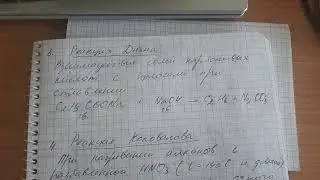 3. Реакция Дюма
Взаимодействие солей карбоновых
кислот с щелочами при
сплавлении
C₂H₅COONa + NaOH → C₂H₆ + Na₂CO₃
4. Реакция Коновалова
При нагревании алканов с
разбавленной HNO₃ (t = 140°C и